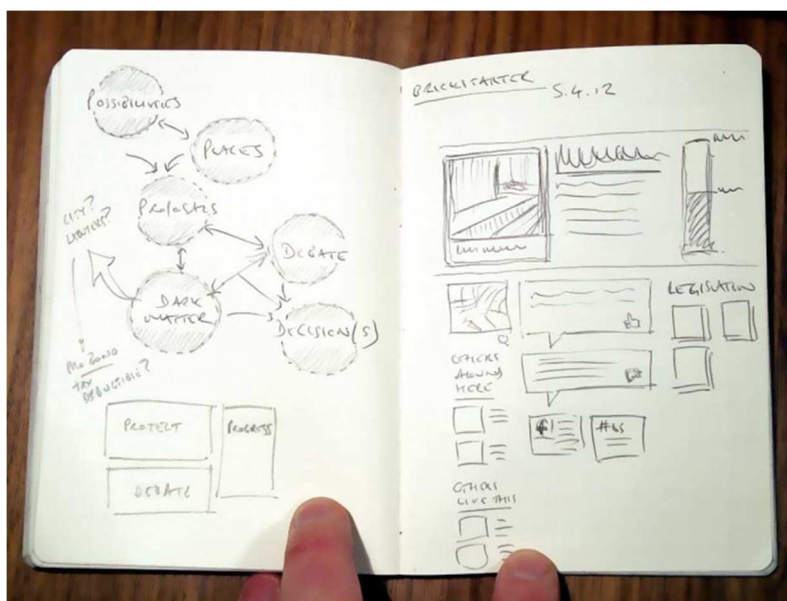 POSSIBILITIES
PLACES
PROJECTS
CITY?
DEBATE
DARK
MATTER
DECISION(S)
PRO BONO
TAX
DEDUCTIBLE?
PROJECT
PROGRESS
DEBATE
BRICKSTARTER
5.4.12
LEGISLATION
OTHERS
AROUND
HERE
f
#bs
OTHERS
LIKE THIS